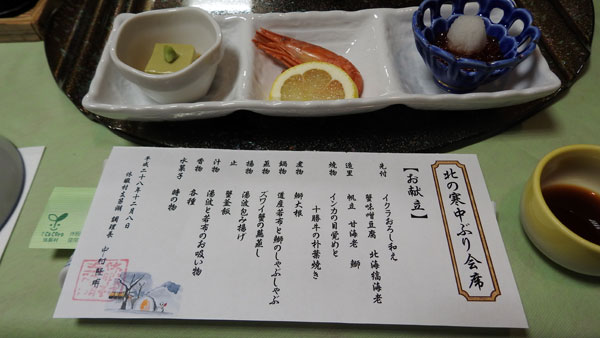 北の寒中ぶり会席
【お献立】
先付 イクラおろし和え
蟹味噌豆腐 北海縞海老
造里 帆立 甘海老 鰤
焼物 インカの目覚めと
十勝牛の朴葉焼き
煮物 鰤大根
鍋物 道産若布と鰤のしゃぶしゃぶ
蒸物 ズワイ蟹の蕪蒸し
揚物 湯波包み揚げ
止 蟹釜飯
汁物 湯波と若布のお吸い物
香物 各種
水菓子 時の物
平成二十八年十二月八日
休暇村支笏湖 調理長
休暇村